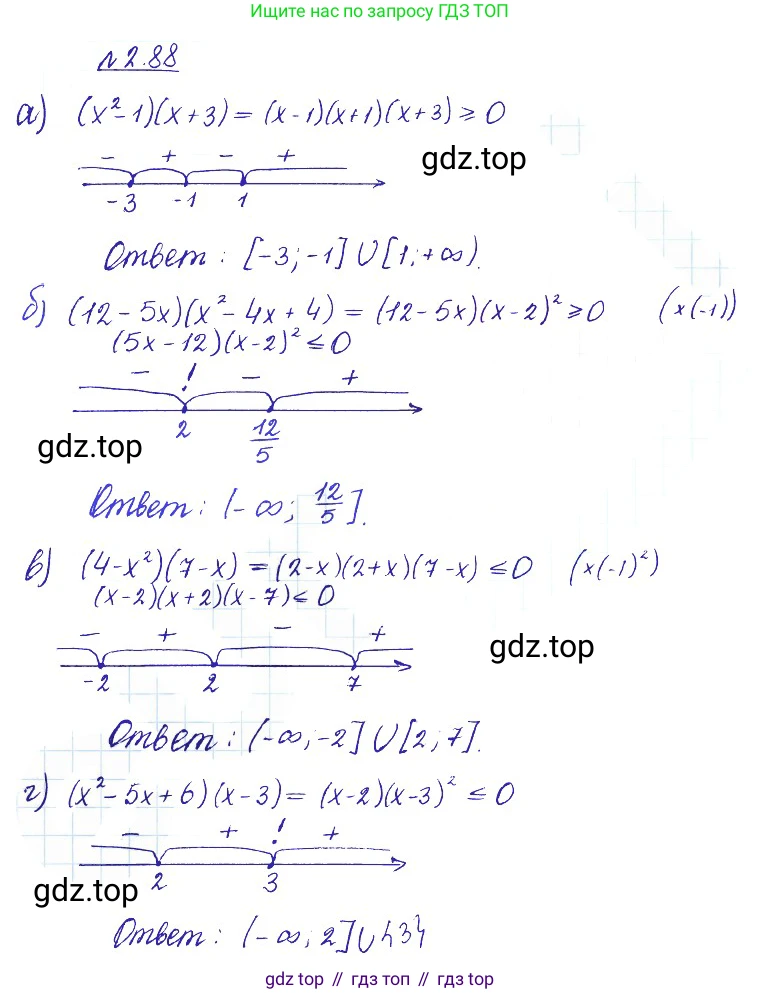 Ищите нас по запросу ГДЗ ТОП
№2.88
а) (x²-1)(x+3) = (x-1)(x+1)(x+3) ≥ 0
- + - +
gdz.top
-3 -1 1
Ответ: [-3; -1] ∪ [1; +∞).
б) (12-5x)(x²-4x+4) = (12-5x)(x-2)² ≥ 0 (x(-1))
(5x-12)(x-2)² ≤ 0
- ! - +
2 12/5
gdz.top
Ответ: (-∞; 12/5].
в) (4-x²)(7-x) = (2-x)(2+x)(7-x) ≤ 0 (x(-1)²)
(x-2)(x+2)(x-7) ≤ 0
- + - +
gdz.top
-2 2 7
Ответ: (-∞; -2] ∪ [2; 7].
г) (x²-5x+6)(x-3) = (x-2)(x-3)² ≤ 0
- + ! +
gdz.top
2 3
Ответ: (-∞; 2] ∪ {3}
gdz top // гдз топ // gdz top